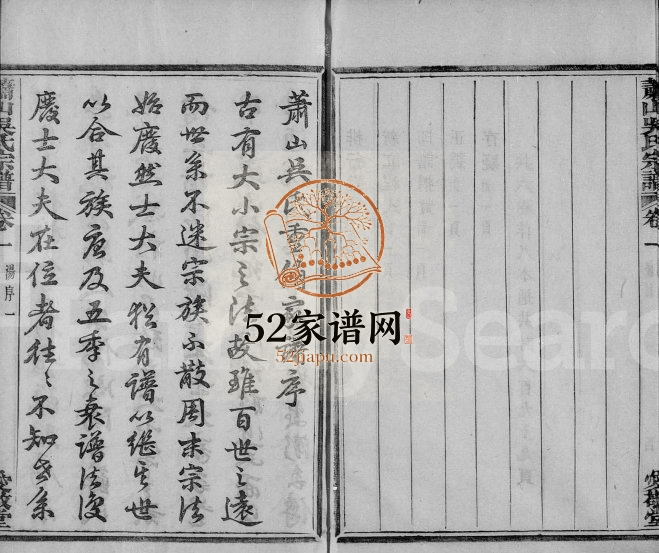 蕭山吳氏宗譜 卷一
蕭山吳氏重修宗譜序
古有大小宗之法故雖百世之遠
而世系不迷宗族不散周末宗法
始廢然士大夫猶有譜以継其世
以合其族唐及五季之衰譜法復
廢士大夫在位者往〻不知世系
蕭山吳氏宗譜 卷一 湯序一
愛敬堂
52家谱网
52jiapu.com